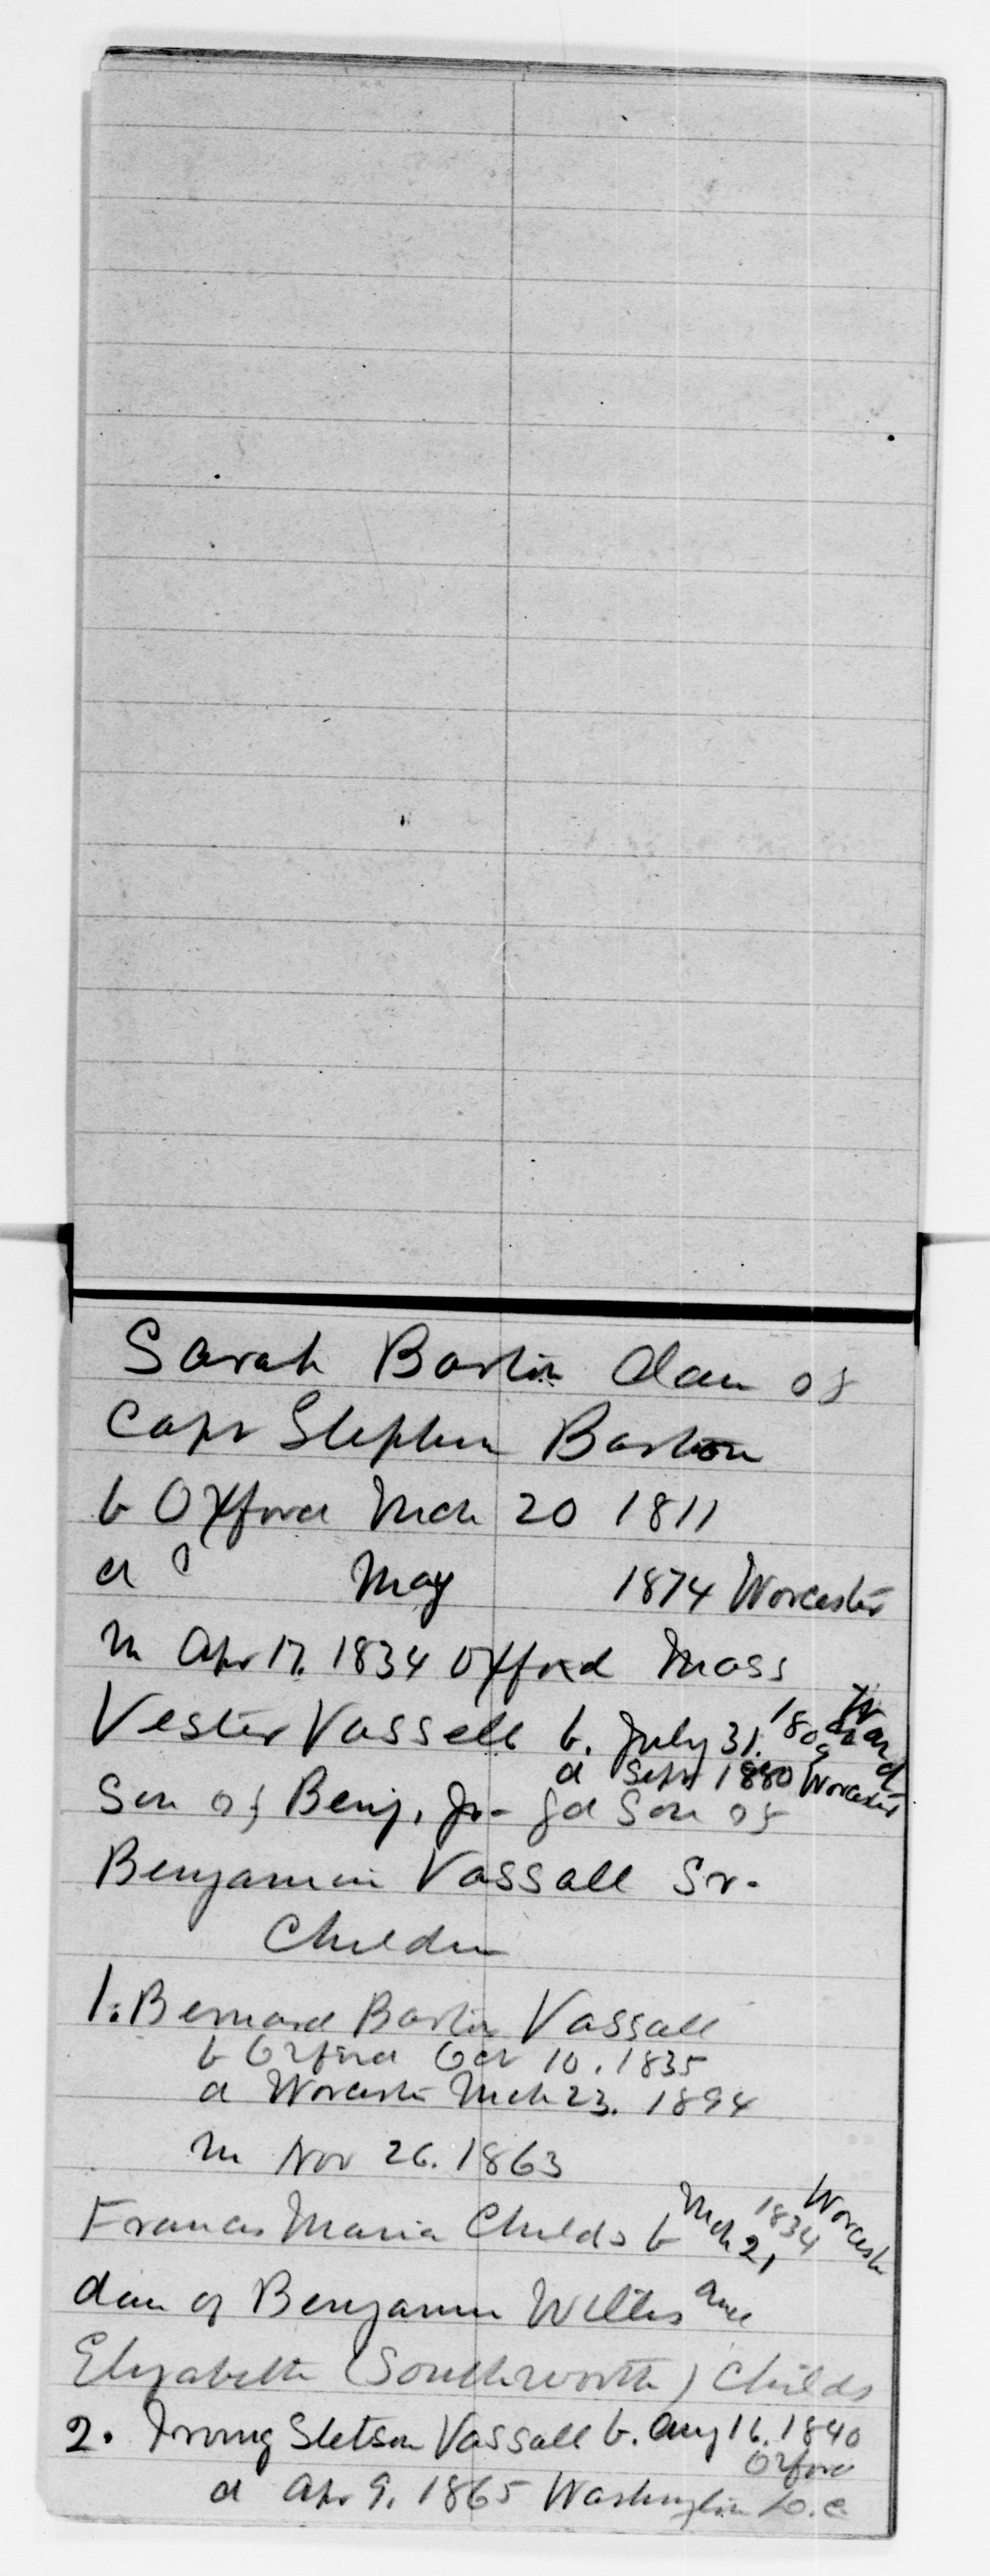 Sarah Barton dau of
Capt Stephen Barton
b Oxford Mch 20 1811
d ? May 1874 Worcester
m Apr 17. 1834 Oxford Mass
Vester Vassall b. July 31. 1809 Ward
d Sept 1880 Worcester
Son of Benj. Jr- gd Son of
Benjamin Vassall Sr.
Children
1. Bernard Barton Vassall
b Oxford Oct 10. 1835
d Worcester Mch 23. 1894
m Nov 26. 1863
Frances Maria Childs b Mch 21 1834 Worcester
dau of Benjamin Willis and
Elizabeth (Southworth) Childs
2. Irving Stetson Vassall b. Aug 16. 1840
Oxford
d Apr 9. 1865 Washington D.C.